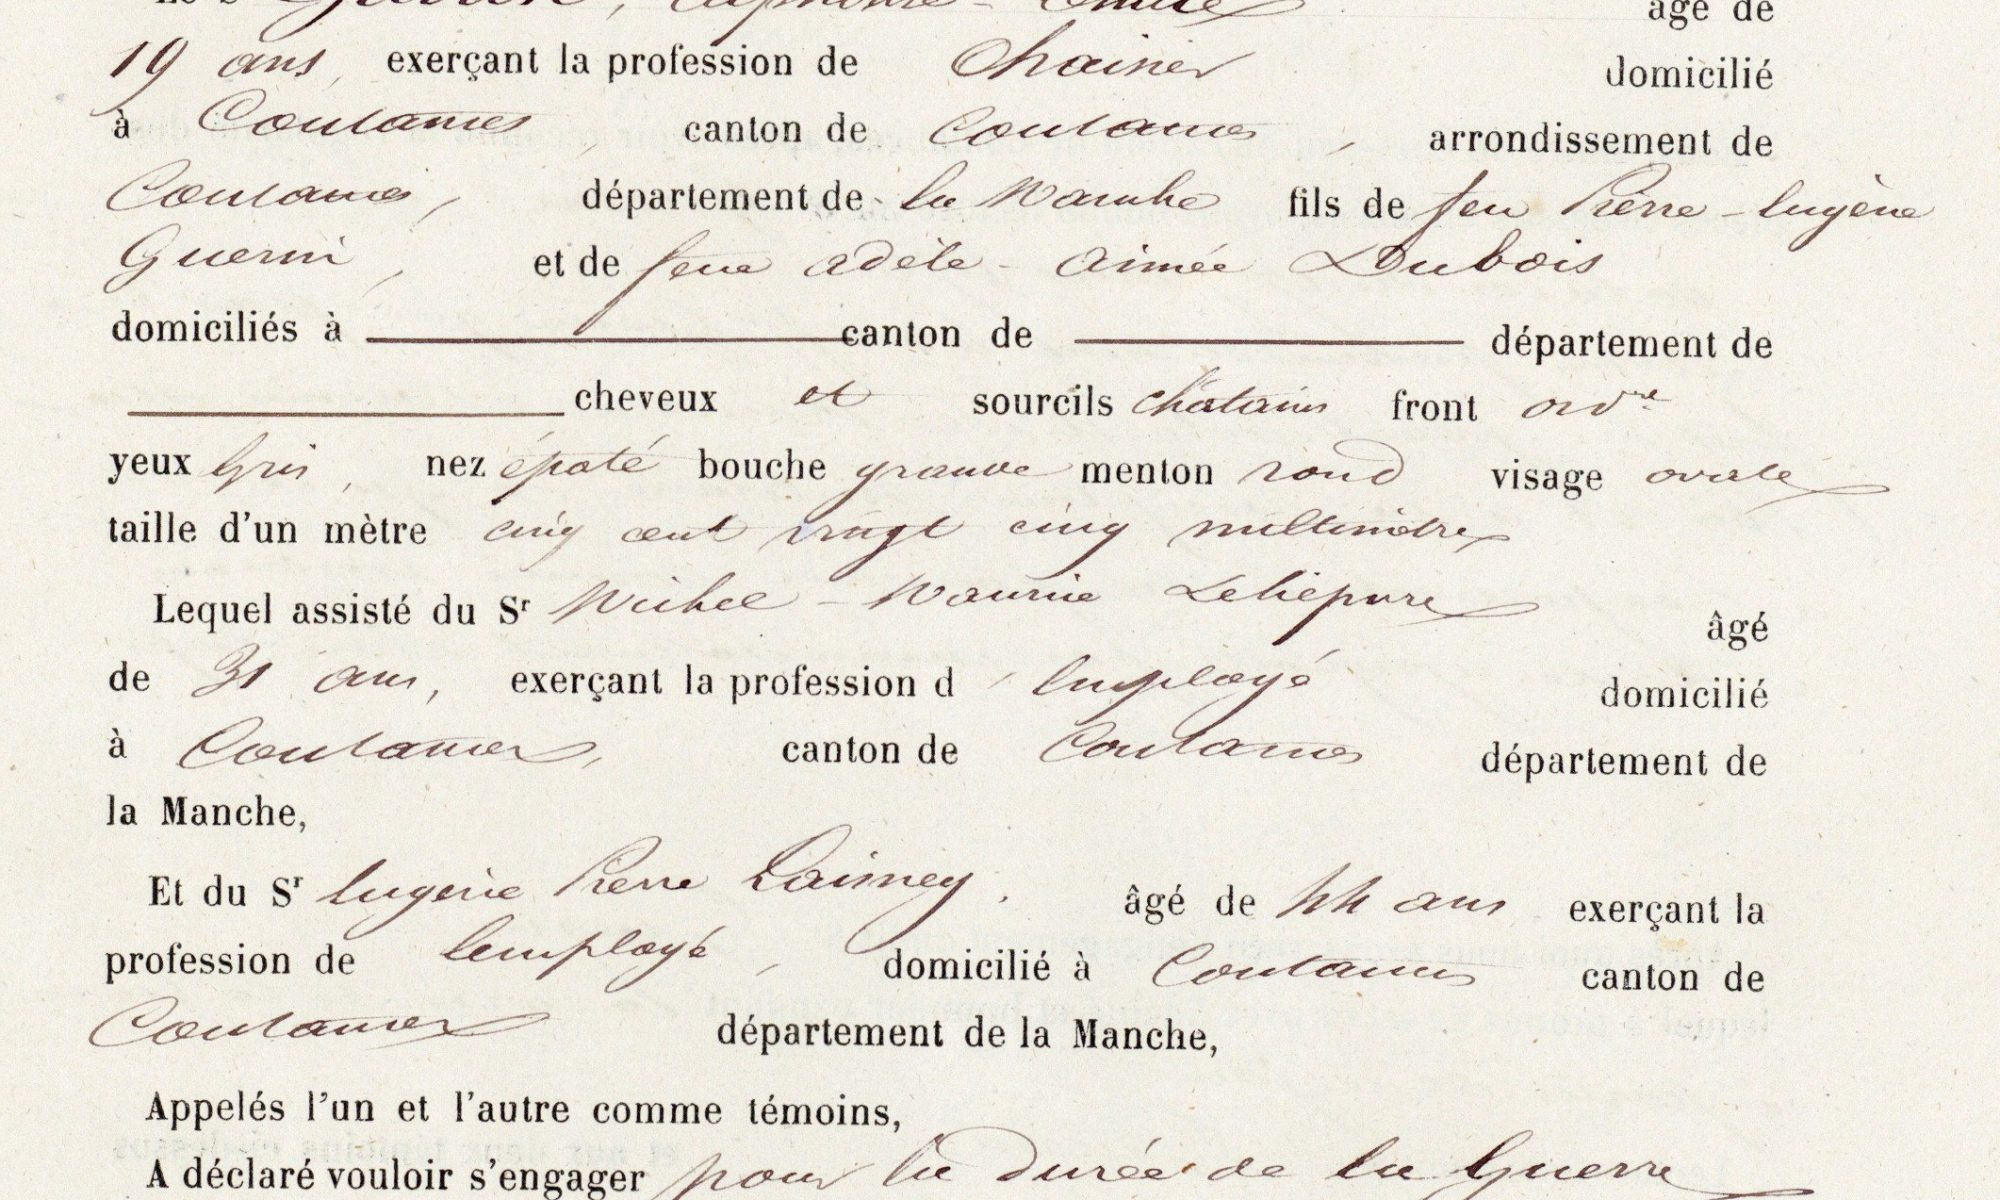 Le Sr Guerin, Alphonse-Emile âgé de
19 ans, exerçant la profession de Chainier domicilié
à Coutances, canton de Coutances, arrondissement de
Coutances, département de la Manche fils de feu Pierre-Eugène
Guerin, et de feue Adèle-Aimée Dubois
domiciliés à canton de département de
cheveux et sourcils châtains front ordre
yeux gris, nez épaté bouche grande menton rond visage ovale
taille d'un mètre cinq cent vingt cinq millimètres
Lequel assisté du Sr Michel-Maurice Lelièpvre âgé
de 31 ans, exerçant la profession d'employé domicilié
à Coutances, canton de Coutances département de
la Manche,
Et du Sr Eugène Pierre Laisney, âgé de 44 ans exerçant la
profession de employé, domicilié à Coutances canton de
Coutances département de la Manche,
Appelés l'un et l'autre comme témoins,
A déclaré vouloir s'engager pour la durée de la Guerre